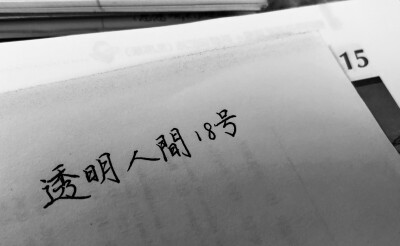 15
透明人間18号